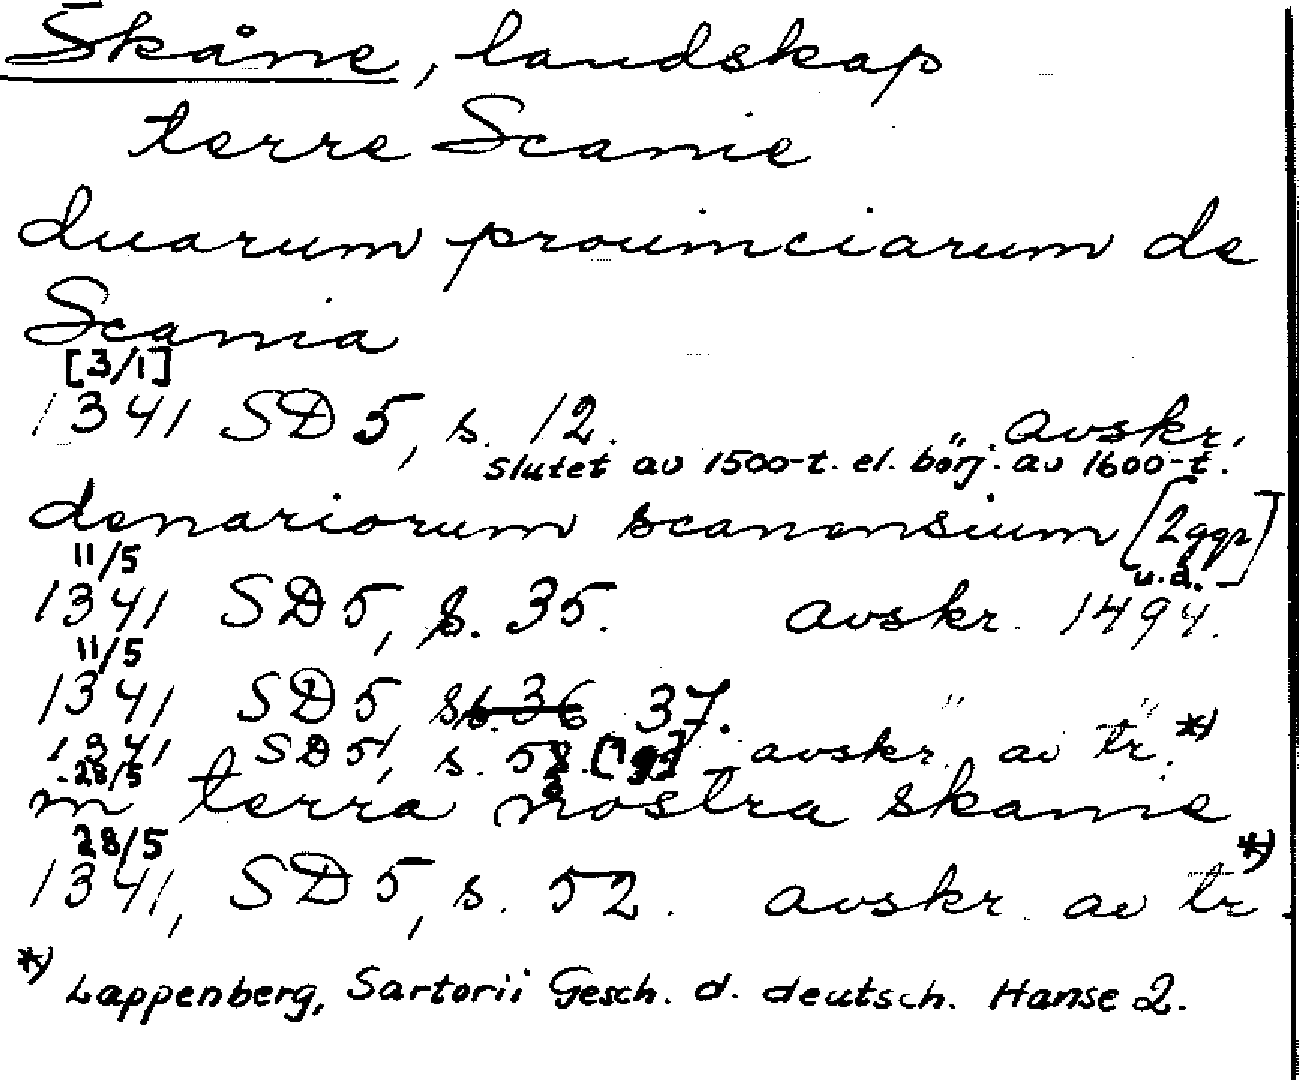 Skåne, landskap
terre Scanie
duarum prouinciarum de
Scania
[3/1]
1341 SD 5, s. 12. avskr.
slutet av 1500-t. el. börj. av 1600-t.
denariorum scanensium [2ggr]
11/5 u.å.
1341 SD 5, s. 35. avskr. 1494.
11/5
1341 SD 5, s. 36 37. " "
1341 SD 5, s. avskr. av tr. *)
28/5
in terra nostra skanie
28/5
1341, SD 5, s. 52. avskr. av tr. *)
*) Lappenberg, Sartorii Gesch. d. deutsch. Hanse 2.